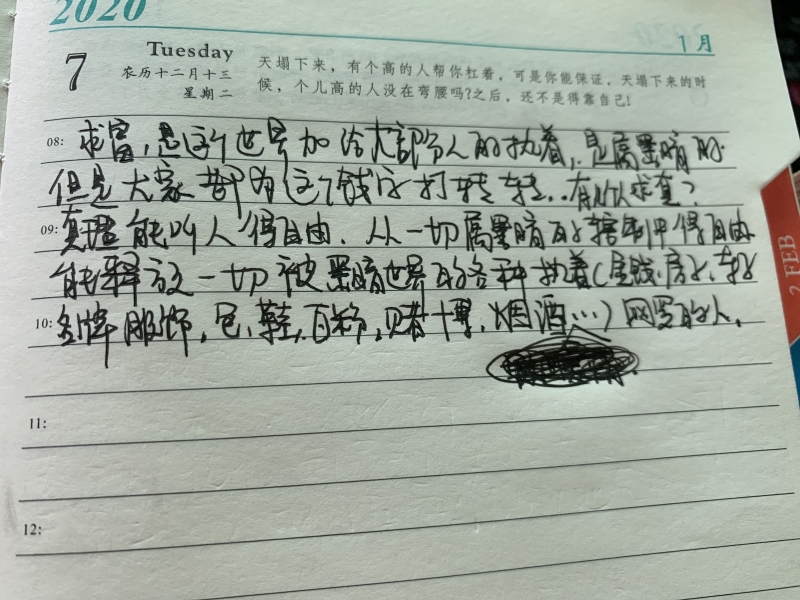 2020
1月
7
Tuesday
农历十二月十三
星期二
天塌下来，有个高的人帮你杠着，可是你能保证，天塌下来的时
候，个儿高的人没在弯腰吗?之后，还不是得靠自己!
08: 求富，是这个世界加给大部分人的执着，是属黑暗的
但是大家都为这个钱字打转转...有人求真?
09: 真理能叫人得自由．从一切属黑暗的辖制中得自由
能释放一切被黑暗世界的各种执着(金钱．房子、车子
10: 名牌服饰，包、鞋，百称，赌博，烟酒...)网罗的人．
11:
12:
2 FEB